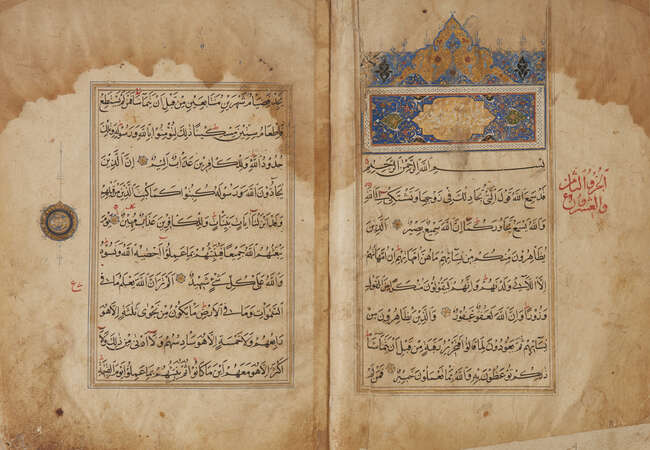 بسم الله الرحمن الرحيم
قد سمع الله قول التي تجادلك في زوجها وتشتكي الى الله
والله يسمع تحاوركما ان الله سميع بصير الذين
يظاهرون منكم من نسائهم ما هن امهاتهم ان امهاتهم
الا اللائي ولدنهم وانهم ليقولون منكرا من القول
وزورا وان الله لعفو غفور والذين يظاهرون من
نسائهم ثم يعودون لما قالوا فتحرير رقبة من قبل ان يتماسا
ذلكم توعظون به والله بما تعملون خبير فمن لم
الجزو الثامن
والعشرون
يجد فصيام شهرين متتابعين من قبل ان يتماسا فمن لم يستطع
فاطعام ستين مسكينا ذلك لتؤمنوا بالله ورسوله وتلك
حدود الله وللكافرين عذاب اليم ان الذين
يحادون الله ورسوله كبتوا كما كبت الذين من قبلهم
وقد انزلنا ايات بينات وللكافرين عذاب مهين يوم
يبعثهم الله جميعا فينبئهم بما عملوا احصيه الله ونسوه
والله على كل شيء شهيد الم تر ان الله يعلم ما في
السموات وما في الارض ما يكون من نجوى ثلثة الا هو
رابعهم ولا خمسة الا هو سادسهم ولا ادنى من ذلك ولا
اكثر الا هو معهم اين ما كانوا ثم ينبئهم بما عملوا يوم القيمة